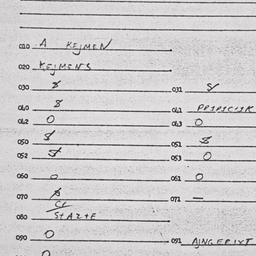 010 A KEJMEN
020 KEJMENS
030 8 031 S/
040 8 041 PRIPICIJK
042 0 043 0
050 8 051 8
052 053 0
060 0 061 0
070 071 —
080 STAZTE
090 0 091 AJNGEPIXT
0